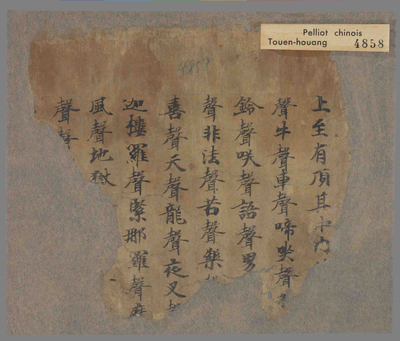 Pelliot chinois
Touen-houang 4858
上至有頂其中内
聲牛聲車聲啼哭聲
鈴聲咲聲語聲男
聲非法聲苦聲樂
喜聲天聲龍聲夜叉
迦樓羅聲緊那羅聲
風聲地獄
聲聲